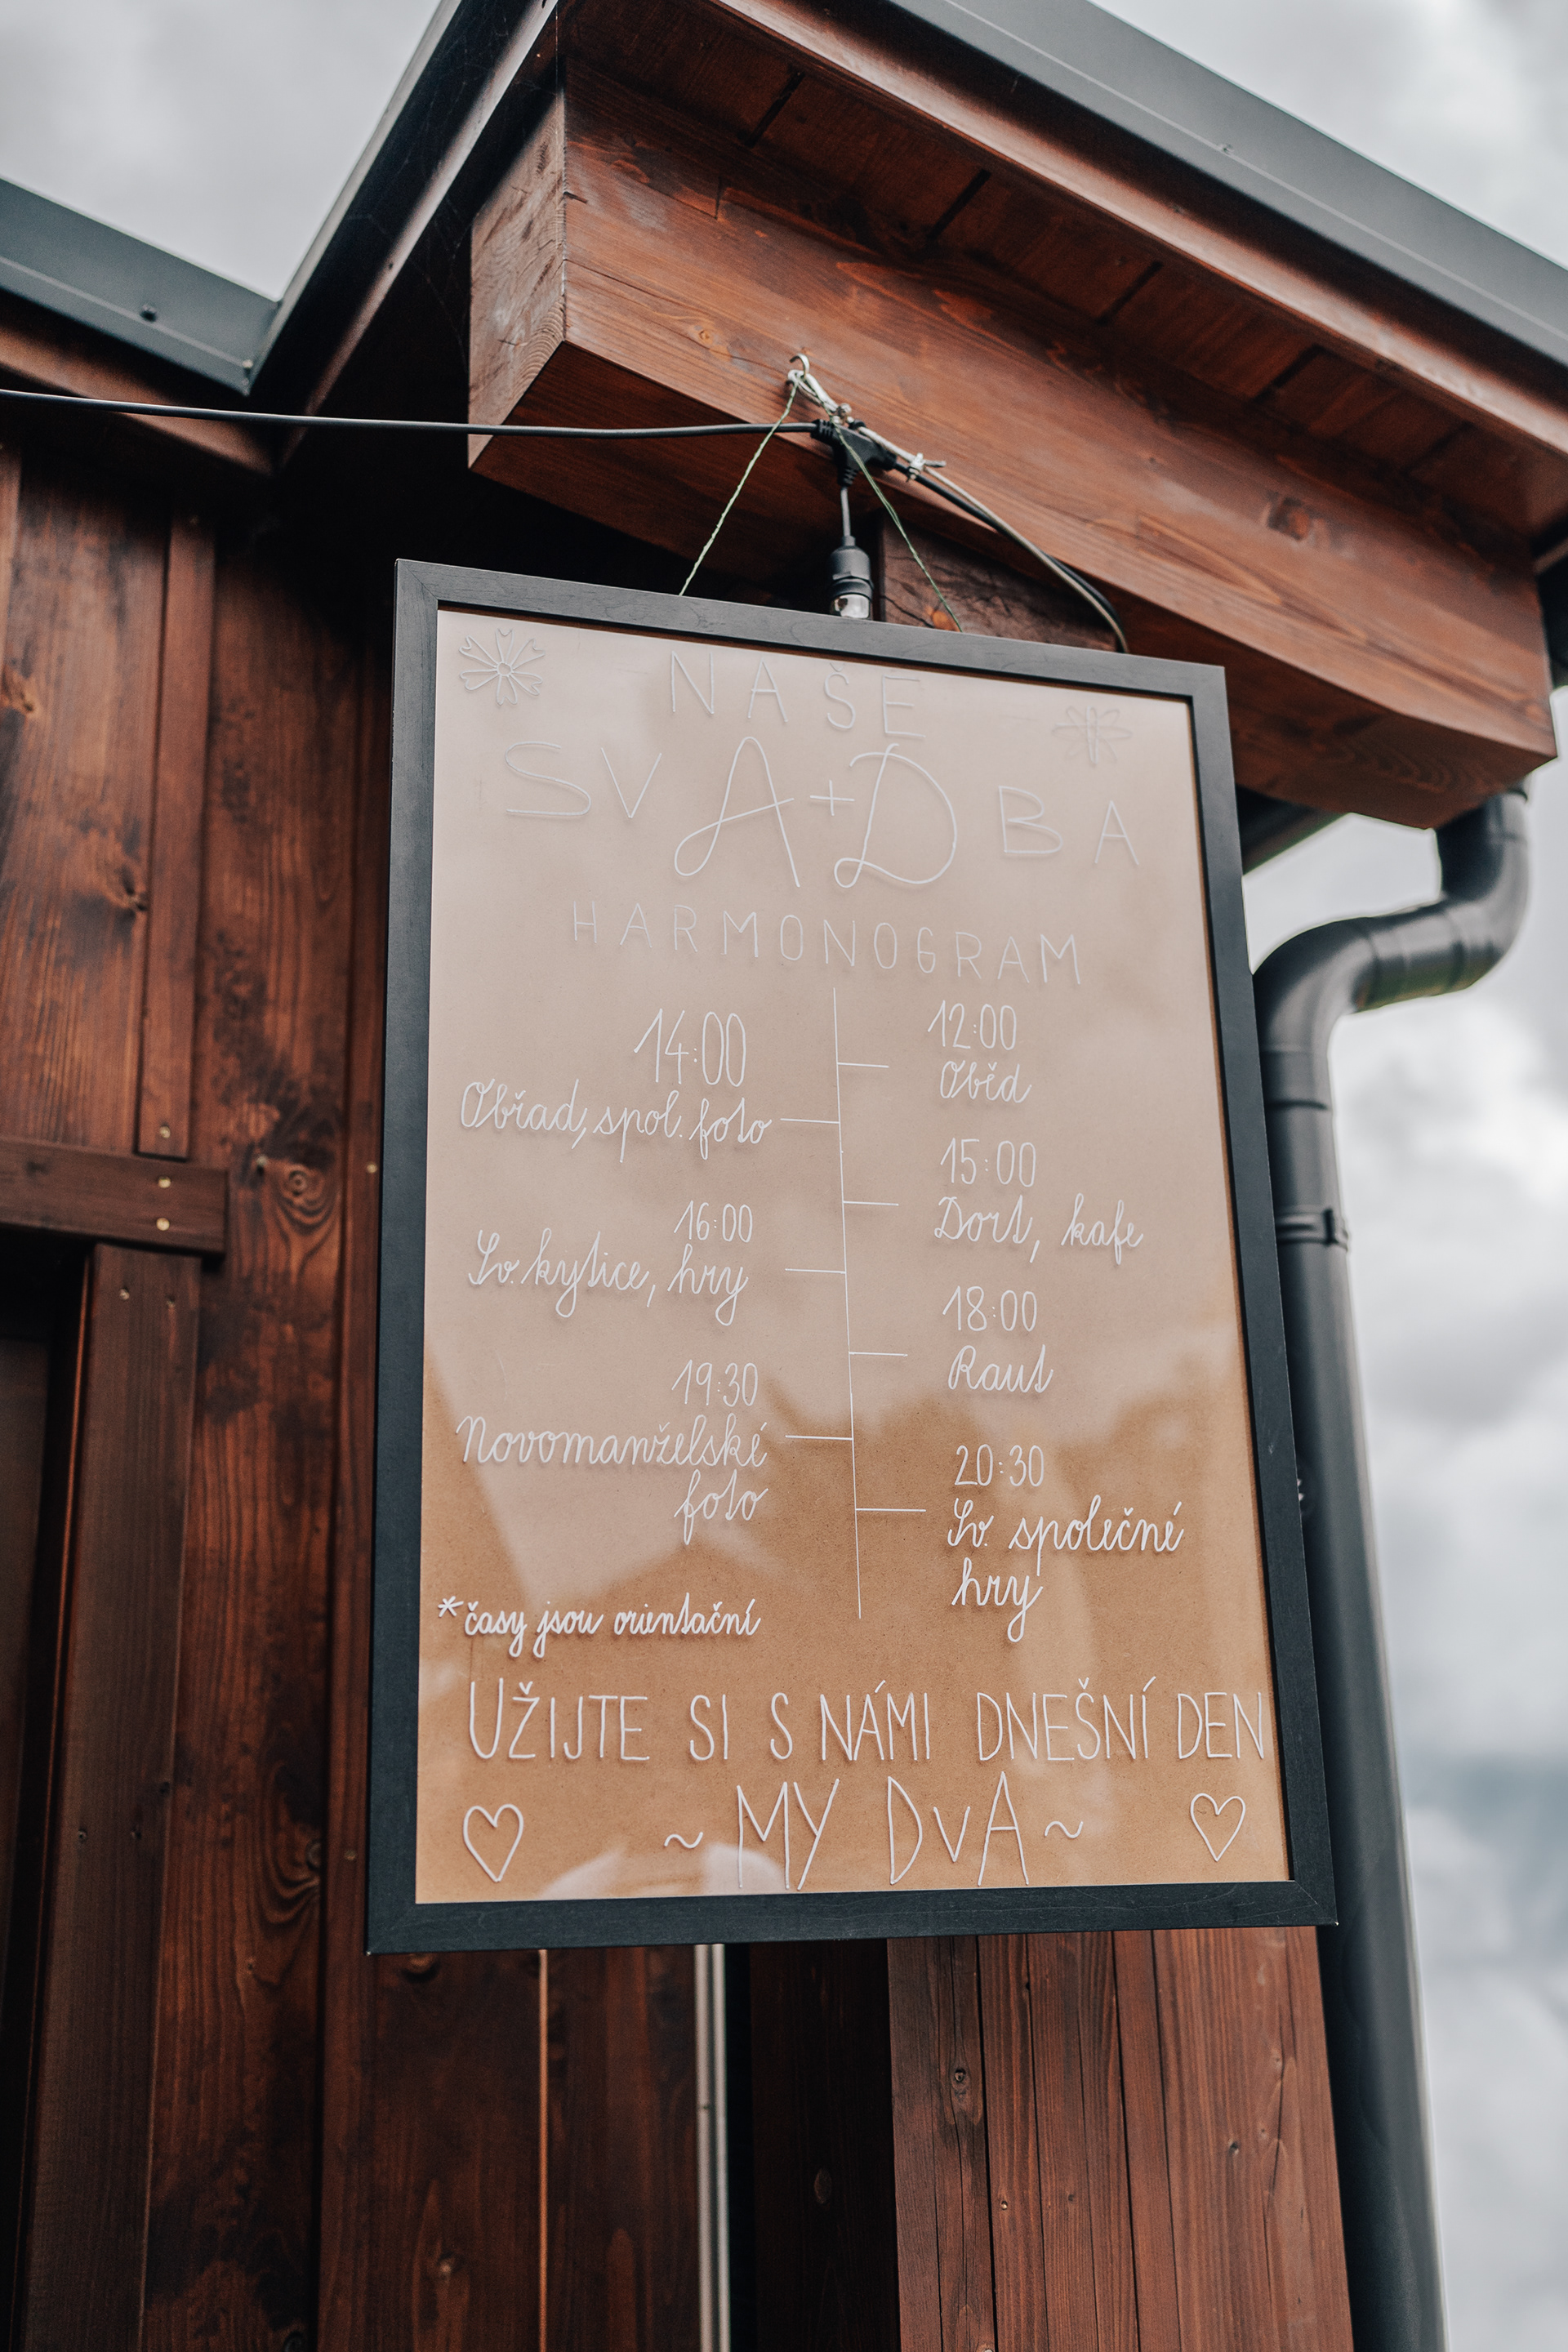 NAŠE
SVA+DBA
HARMONOGRAM
12:00
Oběd
14:00
Obřad, spol. foto
15:00
Dort, kafe
16:00
Sv. kytice, hry
18:00
Raut
19:30
Novomanželské
foto
20:30
Sv. společné
hry
*časy jsou orientační
UŽIJTE SI S NÁMI DNEŠNÍ DEN
~ MY DVA ~